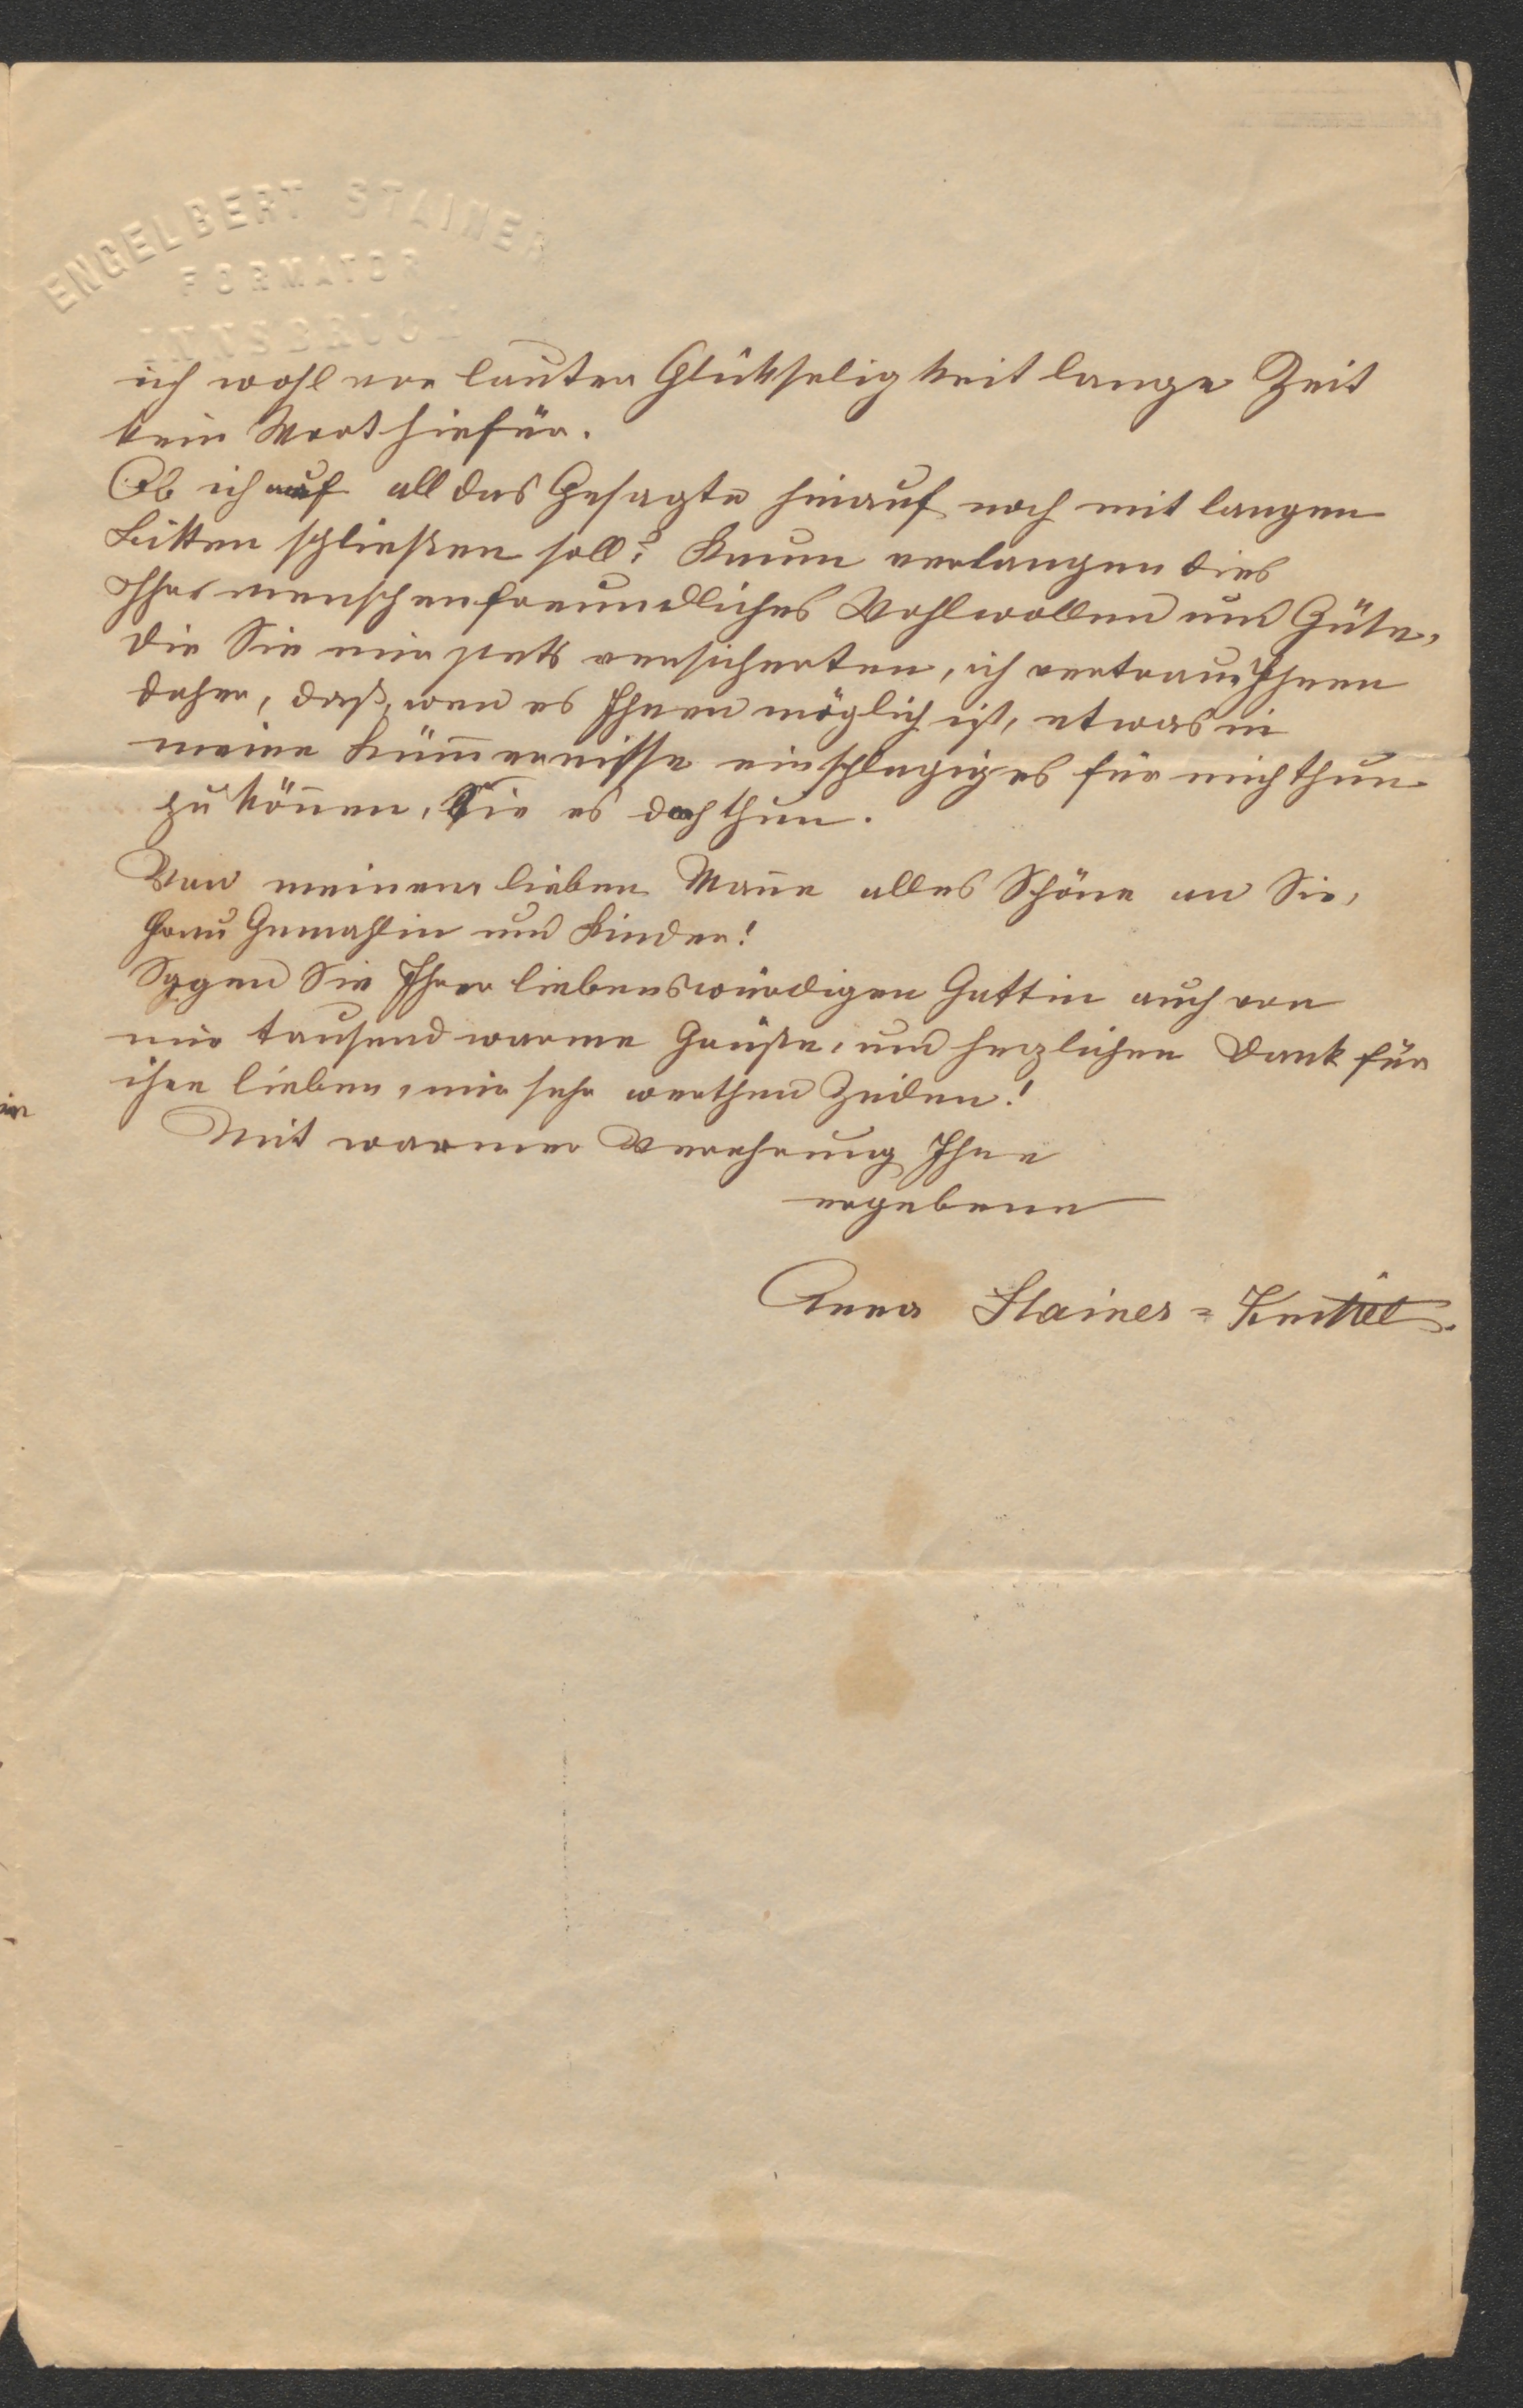 ENGELBERT STAINER
FORMATOR
INNSBRUCK
ich wohl vor lauter Glückseligkeit lange Zeit
kein Wort hiefür.
Ob ich auf all das Gesagte hinauf noch mit langen
Bitten schließen soll? Kaum verlangen dies
Ihr menschenfreundliches Wohlwollen und Güte,
die Sie mir stets versicherten, ich vertraue Ihnen
daher, daß, wen es Ihnen möglich ist, etwas in
meine Kümernisse einschlagiges für mich thun
zu können, Sie es doch thun.
Von meinem lieben Mane alles Schöne an Sie,
Frau Gemahlin und Kinder!
Sagen Sie Ihrer liebenswürdigen Gattin auch von
mir tausend warme Grüße, und herzlichen Dank für
ihre lieben, mir sehr werthen Zeilen!
Mit warmer Verehrung Ihre
ergebene
Anna Stainer=Knittel.